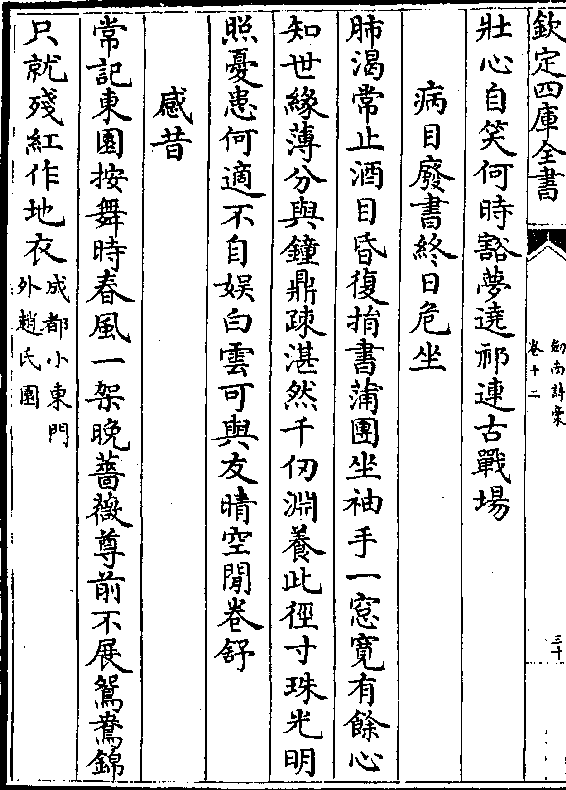 欽定四庫全書
劍南詩稾
卷十二
三十
壯心自笑何時豁夢遶祁連古戰場
病目廢書終日危坐
肺渴常止酒目昏復捐書蒲團坐袖手一窓寛有餘心
知世緣薄分與鐘鼎疎湛然千仞淵養此徑寸珠光明
照憂患何適不自娱白雲可與友晴空閒卷舒
感昔
常記東園按舞時春風一架晚薔薇尊前不展鴛鴦錦
只就殘紅作地衣成都小東門
外趙氏園